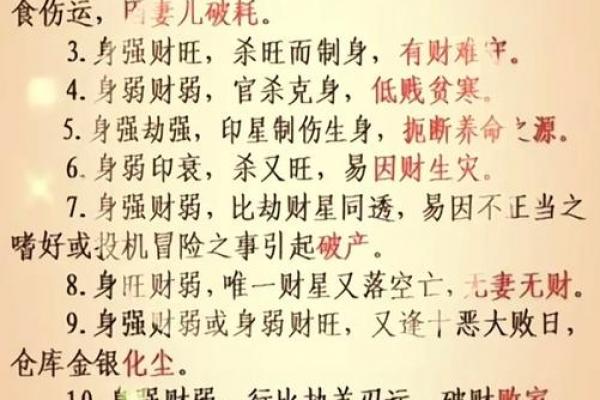 食伤运，因妻儿破耗。
3.身强财旺，杀旺而制身，有财难守。
4.身弱财弱，官杀克身，低贱贫寒。
5.身强劫强，印星制伤生身，扼断养命之源。
6.身弱印衰，杀又旺，易因财生灾。
7.身强财弱，比劫财星同透，易因不正当之
嗜好或投机冒险之事引起破产。
8.身旺财弱，唯一财星又落空亡，无妻无财。
9.身强财弱或身弱财旺，又逢十恶大败日，
仓库金银化尘。
10.身强财弱，行比劫羊刃运，破财败家